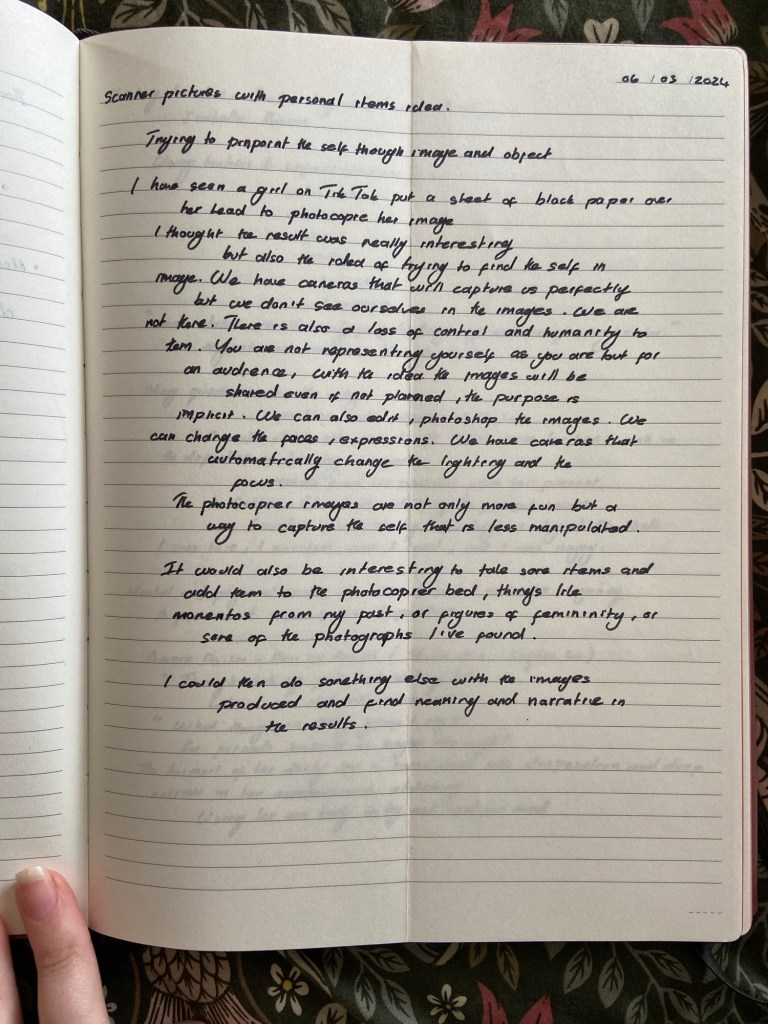 06 / 03 / 2024
Scanner pictures with personal items idea.
Trying to pinpoint the self though image and object
I have seen a girl on TikTok put a sheet of black paper over
her head to photocopie her image
I thought the result was really interesting
but also the idea of trying to find the self in
image. We have cameras that will capture us perfectly
but we don't see ourselves in the images. We are
not there. There is also a loss of control and humanity to
them. You are not representing yourself as you are but for
an audience, with the idea the images will be
shared even if not planned, the purpose is
implicit. We can also edit, photoshop the images. We
can change the faces, expressions. We have cameras that
automatically change the lighting and the
focus.
The photocopier images are not only more fun but a
way to capture the self that is less manipulated.
It would also be interesting to take some items and
add them to the photocopier bed, things like
momentos from my past, or figures of femininity, or
some of the photographs I've found.
I could then do something else with the images
produced and find meaning and narrative in
the results.